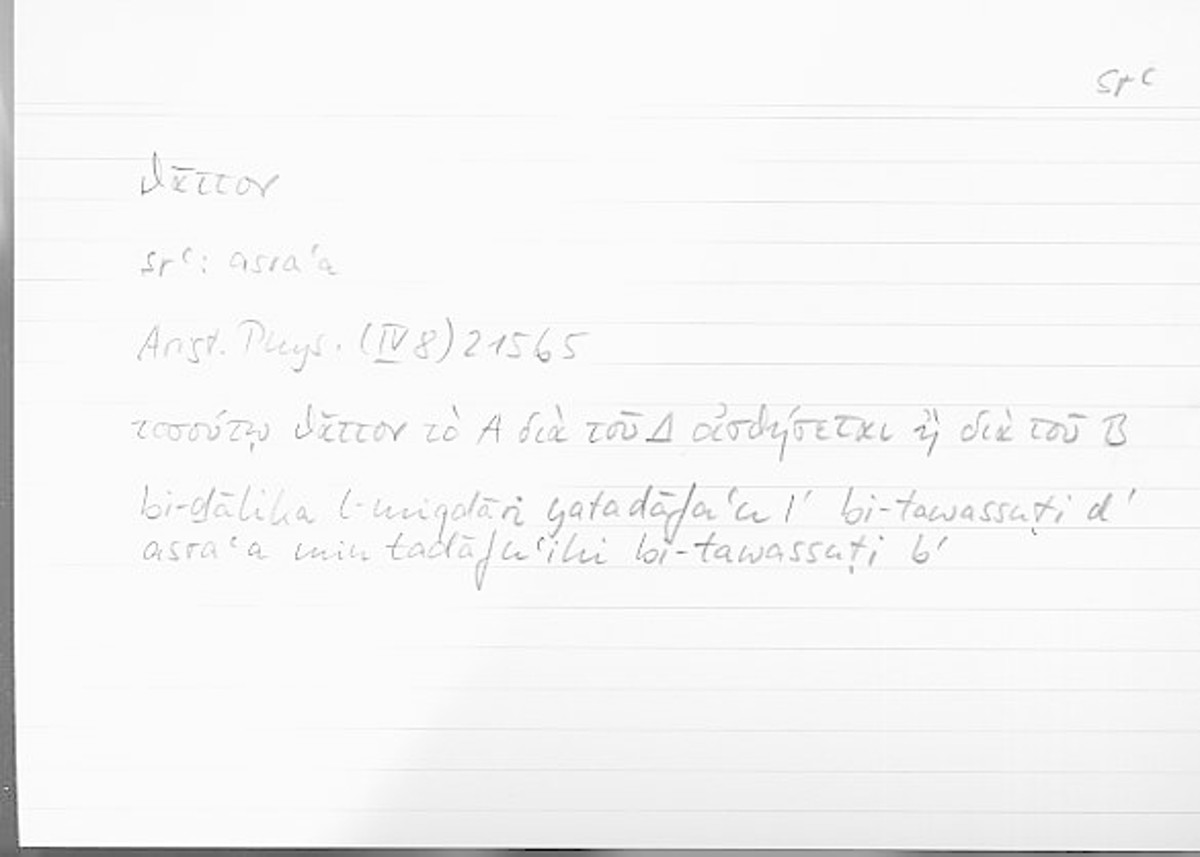 srʿ
θᾶττον
srʿ: asraʿa
Arist. Phys. (IV 8) 215b5
τοσούτῳ θᾶττον τὸ A διὰ τοῦ Δ οἰσθήσεται ἢ διὰ τοῦ B
bi-ḏālika l-miqdāri yatadāfaʿu lʾ bi-tawassuṭi dʾ
asraʿa min tadāfuʿihi bi-tawassuṭi bʾ